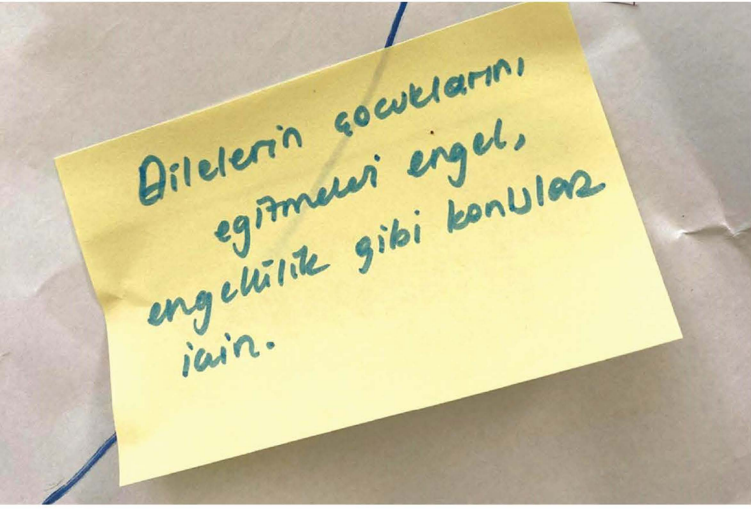 Ailelerin çocuklarını
eğitmeleri engel,
engellilik gibi konular
için.